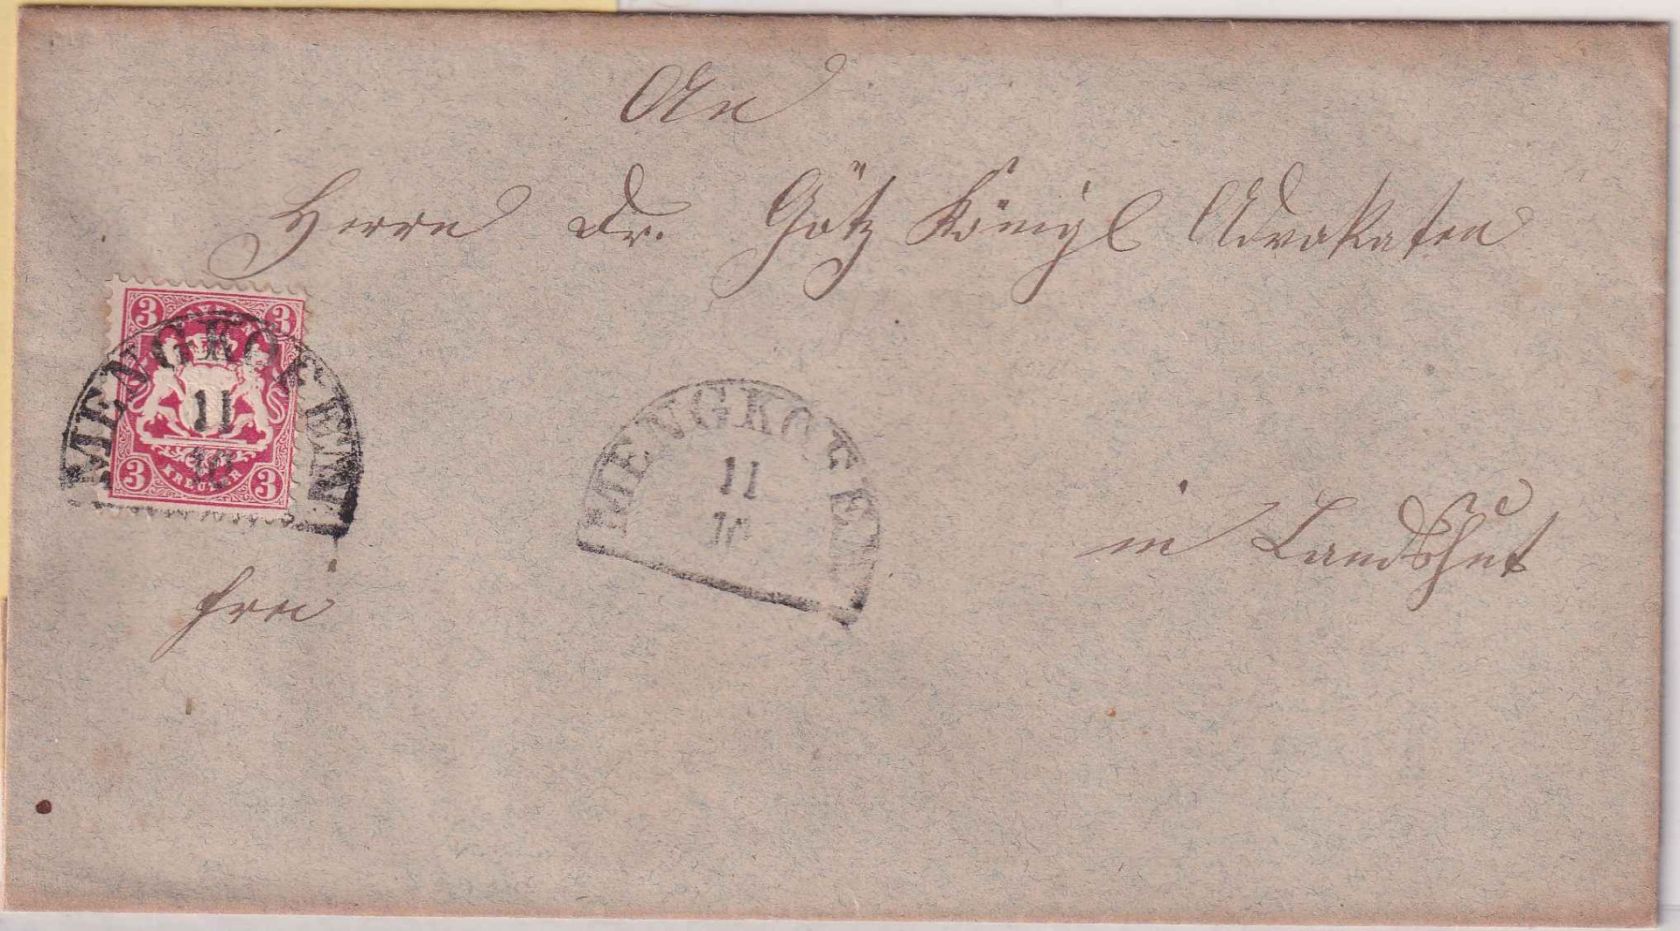 An
Herrn Dr. Götz Königl Advokaten
3 3
MENGKOFEN
11
10
3 KREUZER 3
MENGKOFEN
11
10
in Landshut
frei